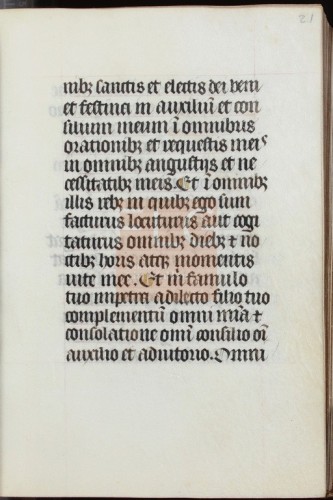 21
nibꝫ sanctis et electis dei veni
et festina in auxiliū et con
silium meum ī omnibus
orationibꝫ et requestis meis
in omnibꝫ angustijs et ne
cessitatibꝫ meis. Et ī omnibꝫ
illis rebꝫ in quibꝫ ego sum
facturus locuturus aut cogi
taturus omnibꝫ diebꝫ ⁊ no
ctibꝫ horis atqꝫ momentis
uite mee. Et m̄ famulo
tuo impetra a dilecto filio tuo
complementū omni mīa ⁊
consolatione omī consilio oī
auxilio et adiutorio. Omni